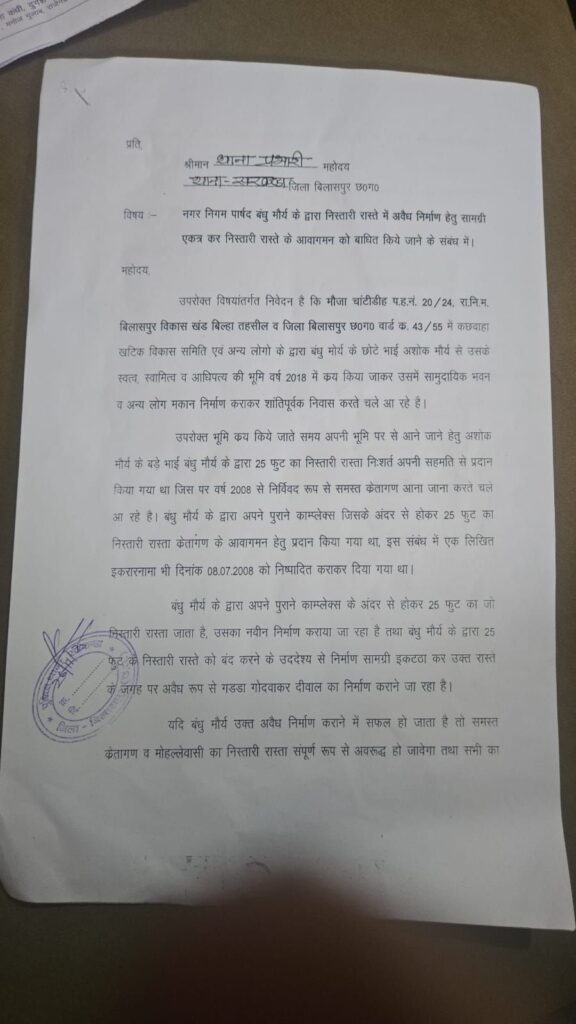 प्रति,
श्रीमान थाना प्रभारी महोदय
थाना-सरकण्डा जिला बिलासपुर छ०ग०
विषय :- नगर निगम पार्षद बंधु मौर्य के द्वारा निस्तारी रास्ते में अवैध निर्माण हेतु सामग्री
एकत्र कर निस्तारी रास्ते के आवागमन को बाधित किये जाने के संबंध में।
महोदय,
उपरोक्त विषयांतर्गत निवेदन है कि मौजा चांटीडीह प.ह.नं. 20/24, रा.नि.म.
बिलासपुर विकास खंड बिल्हा तहसील व जिला बिलासपुर छ०ग० वार्ड क. 43/55 में कछवाहा
खटिक विकास समिति एवं अन्य लोगो के द्वारा बंधु मोर्य के छोटे भाई अशोक मौर्य से उसके
स्वत्व, स्वामित्व व आधिपत्य की भूमि वर्ष 2018 में कय किया जाकर उसमें सामुदायिक भवन
व अन्य लोग मकान निर्माण कराकर शांतिपूर्वक निवास करते चले आ रहे है।
उपरोक्त भूमि कय किये जाते समय अपनी भूमि पर से आने जाने हेतु अशोक
मौर्य के बड़े भाई बंधु मौर्य के द्वारा 25 फुट का निस्तारी रास्ता निःशर्त अपनी सहमति से प्रदान
किया गया था जिस पर वर्ष 2008 से निर्विवद रूप से समस्त केतागण आना जाना करते चले
आ रहे है। बंधु मौर्य के द्वारा अपने पुराने काम्प्लेक्स जिसके अंदर से होकर 25 फुट का
निस्तारी रास्ता केतागण के आवागमन हेतु प्रदान किया गया था, इस संबंध में एक लिखित
इकरारनामा भी दिनांक 08.07.2008 को निष्पादित कराकर दिया गया था।
बंधु मौर्य के द्वारा अपने पुराने काम्प्लेक्स के अंदर से होकर 25 फुट का जो
निस्तारी रास्ता जाता है, उसका नवीन निर्माण कराया जा रहा है तथा बंधु मौर्य के द्वारा 25
फुट के निस्तारी रास्ते को बंद करने के उददेश्य से निर्माण सामग्री इकटठा कर उक्त रास्ते
के जगह पर अवैध रूप से गडडा गोदवाकर दीवाल का निर्माण कराने जा रहा है।
यदि बंधु मौर्य उक्त अवैध निर्माण कराने में सफल हो जाता है तो समस्त
केतागण व मोहल्लेवासी का निस्तारी रास्ता संपूर्ण रूप से अवरूद्ध हो जावेगा तथा सभी का